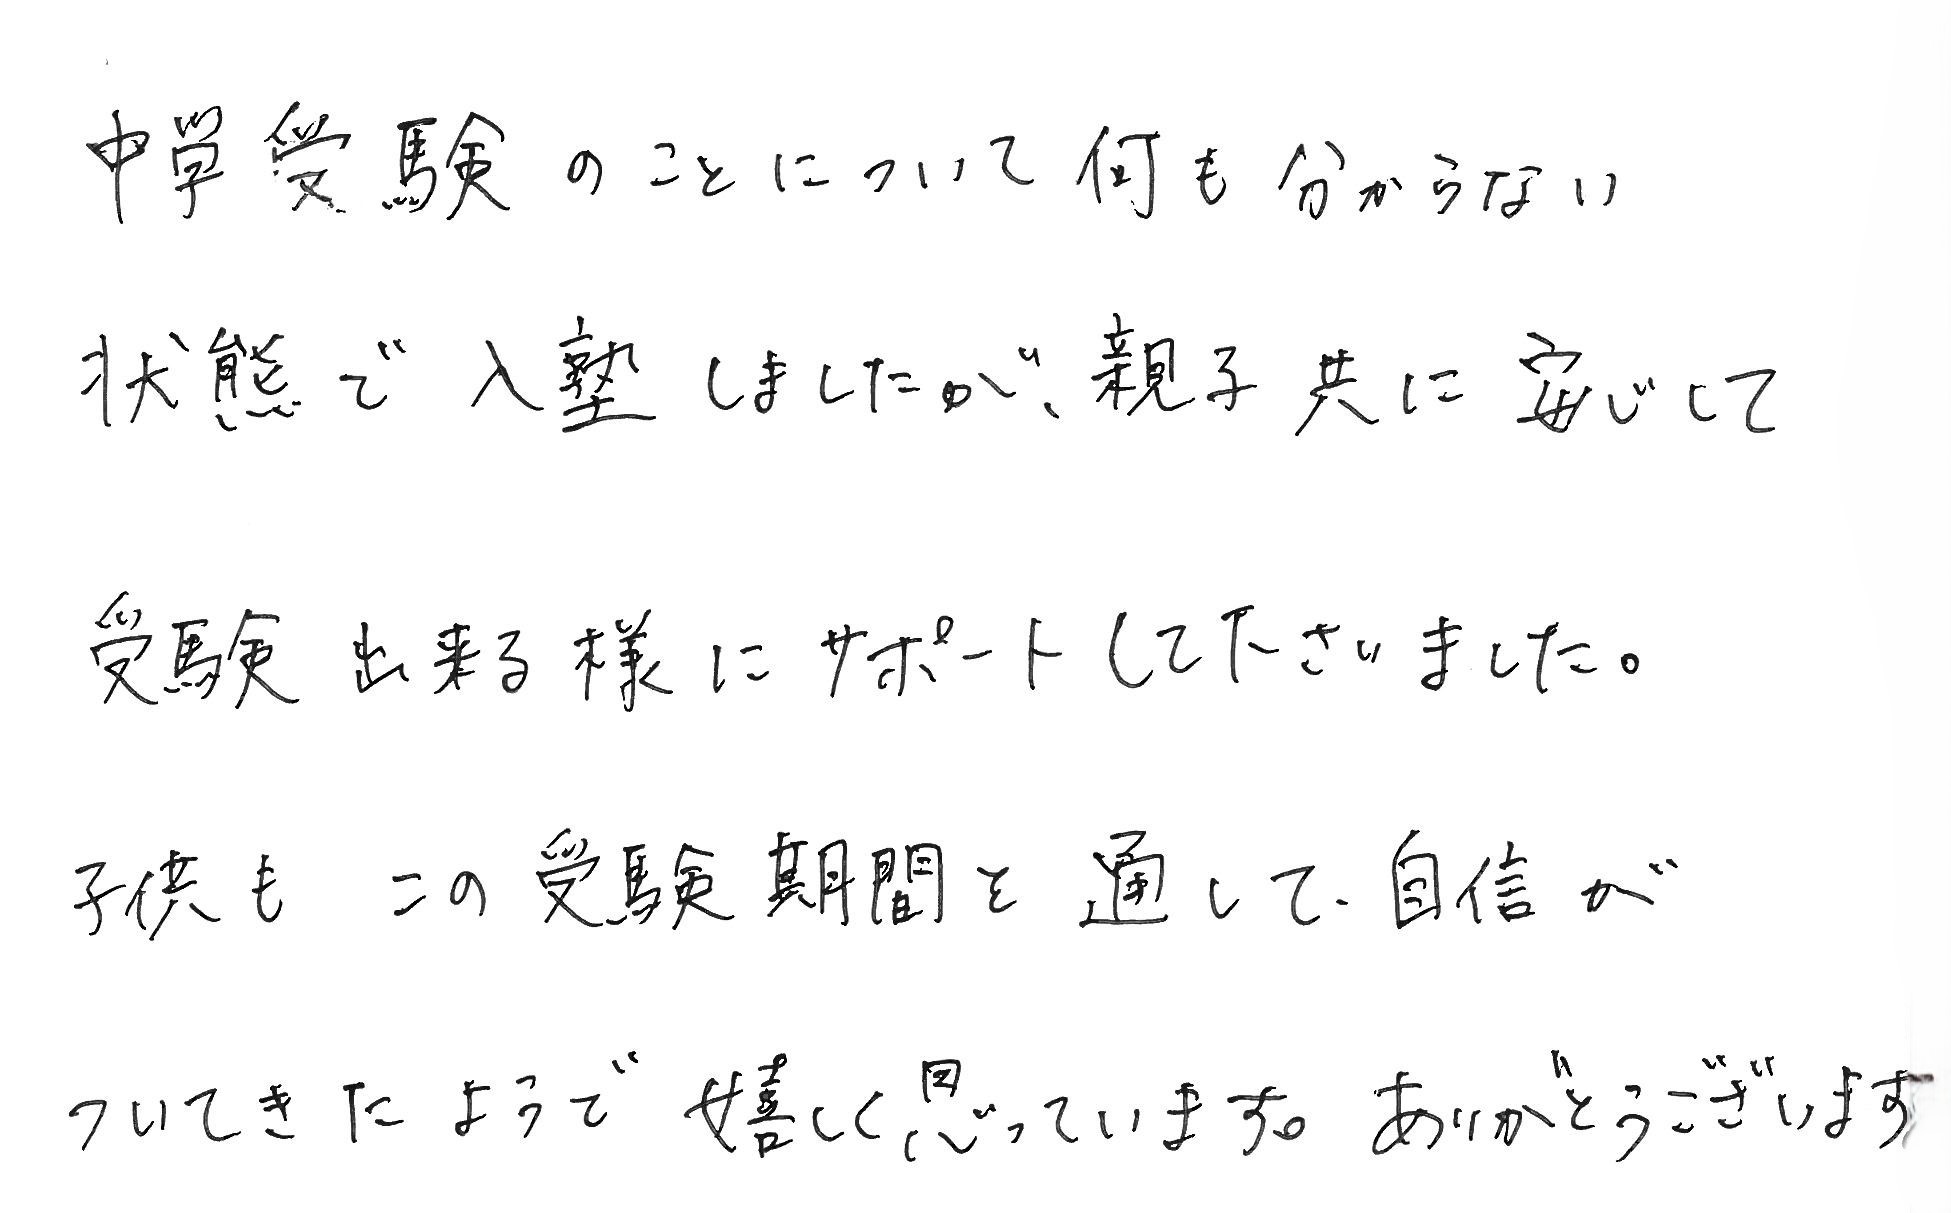 中学受験のことについて何も分からない
状態で入塾しましたが、親子共に安心して
受験出来る様にサポートして下さいました。
子供も この受験期間を通して、自信が
ついてきたようで嬉しく思っています。ありがとうございます